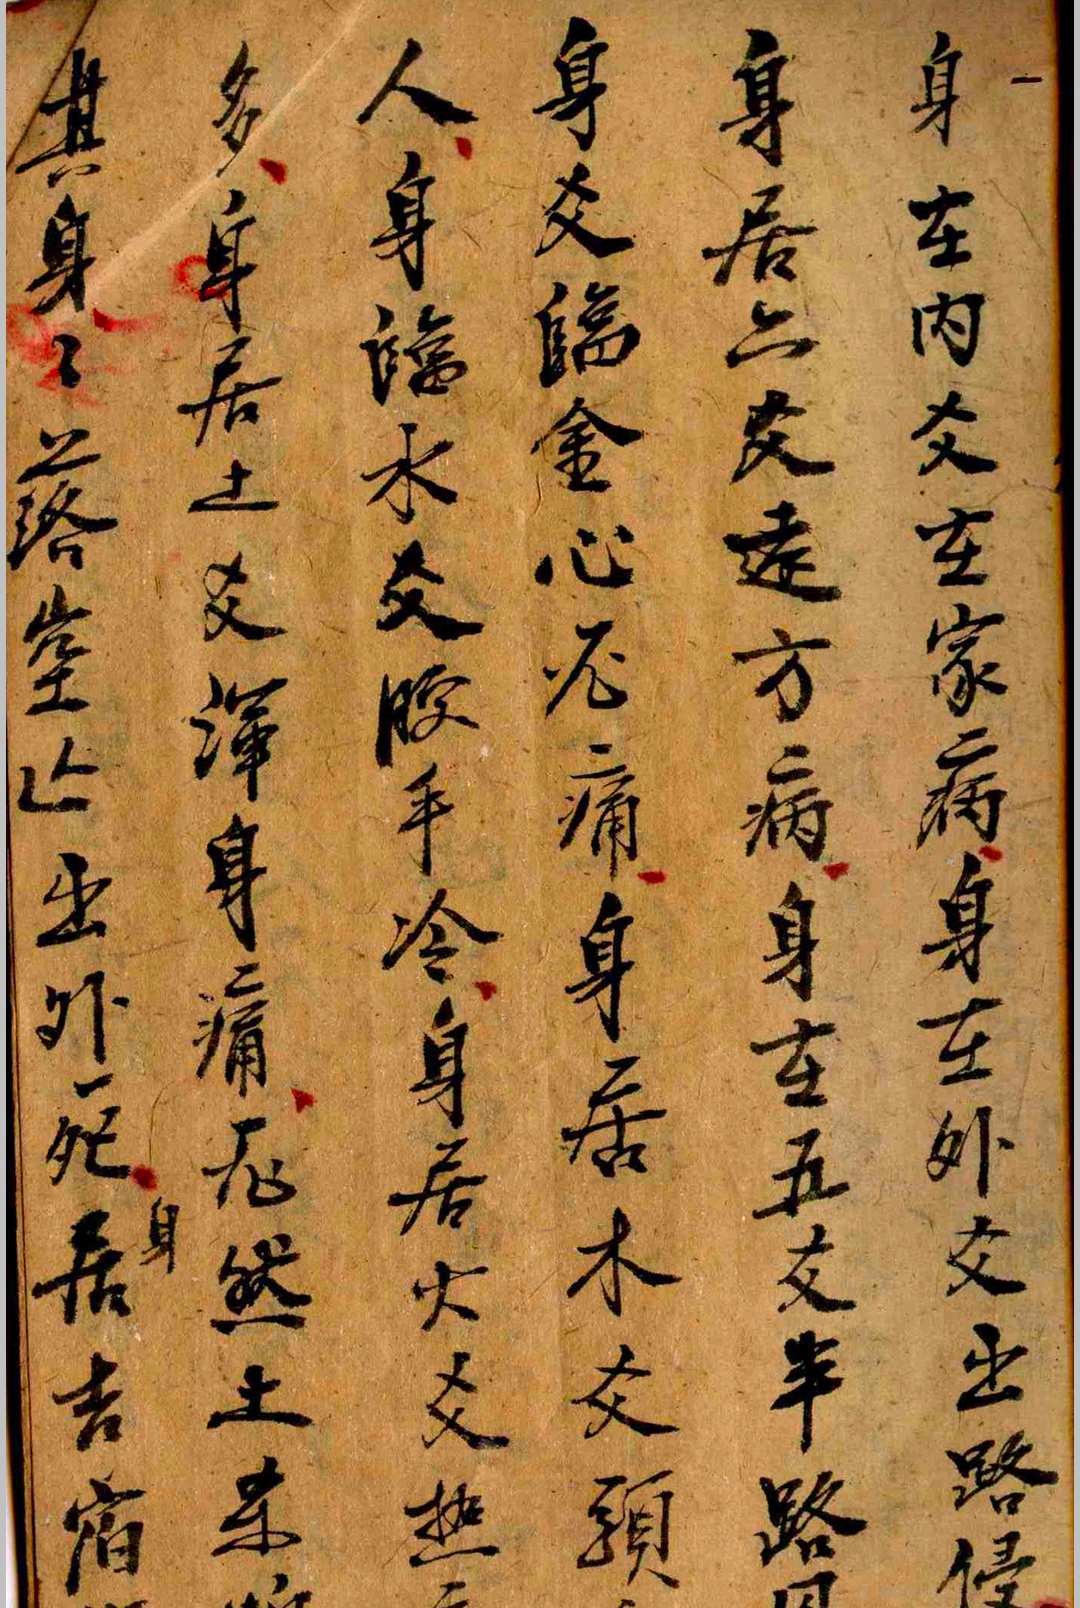 身在内爻在家病身在外爻出路侵
身居六爻遠方病身在五爻半路
身爻臨金心忍痛身居木爻頭
人身臨水爻腰手冷身居火爻热
多身居土爻渾身痛忽然土来
其身々落空亡出外死身居吉宿